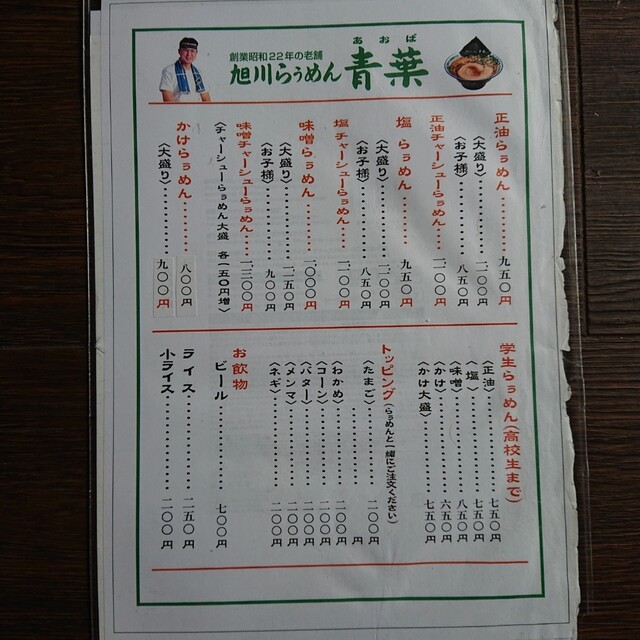 創業昭和22年の老舗
旭川らぅめん 青葉
あおば
正油らぅめん………九五〇円
〈大盛り〉………一一〇〇円
〈お子様〉………八五〇円
正油チャーシューらぅめん…一二〇〇円
塩 らぅめん………九五〇円
〈大盛り〉………一一〇〇円
〈お子様〉………八五〇円
塩 チャーシューらぅめん…一二〇〇円
味噌らぅめん………一〇〇〇円
〈大盛り〉………一一五〇円
〈お子様〉………九〇〇円
味噌チャーシューらぅめん…一三〇〇円
〈チャーシューらぅめん大盛 各一五〇円増〉
かけらぅめん………八〇〇円
〈大盛り〉………九〇〇円
学生らぅめん(高校生まで)
〈正油〉………七五〇円
〈塩〉………七五〇円
〈味噌〉………八五〇円
〈かけ〉………六五〇円
〈かけ大盛〉………七五〇円
トッピング(らぅめんと一緒にご注文ください)
〈たまご〉………一〇〇円
………円
〈わかめ〉………二〇〇円
〈コーン〉………一〇〇円
〈バター〉………一〇〇円
〈メンマ〉………二〇〇円
〈ネギ〉………一〇〇円
お飲物
ビール………七〇〇円
ライス………二五〇円
小ライス………二〇〇円